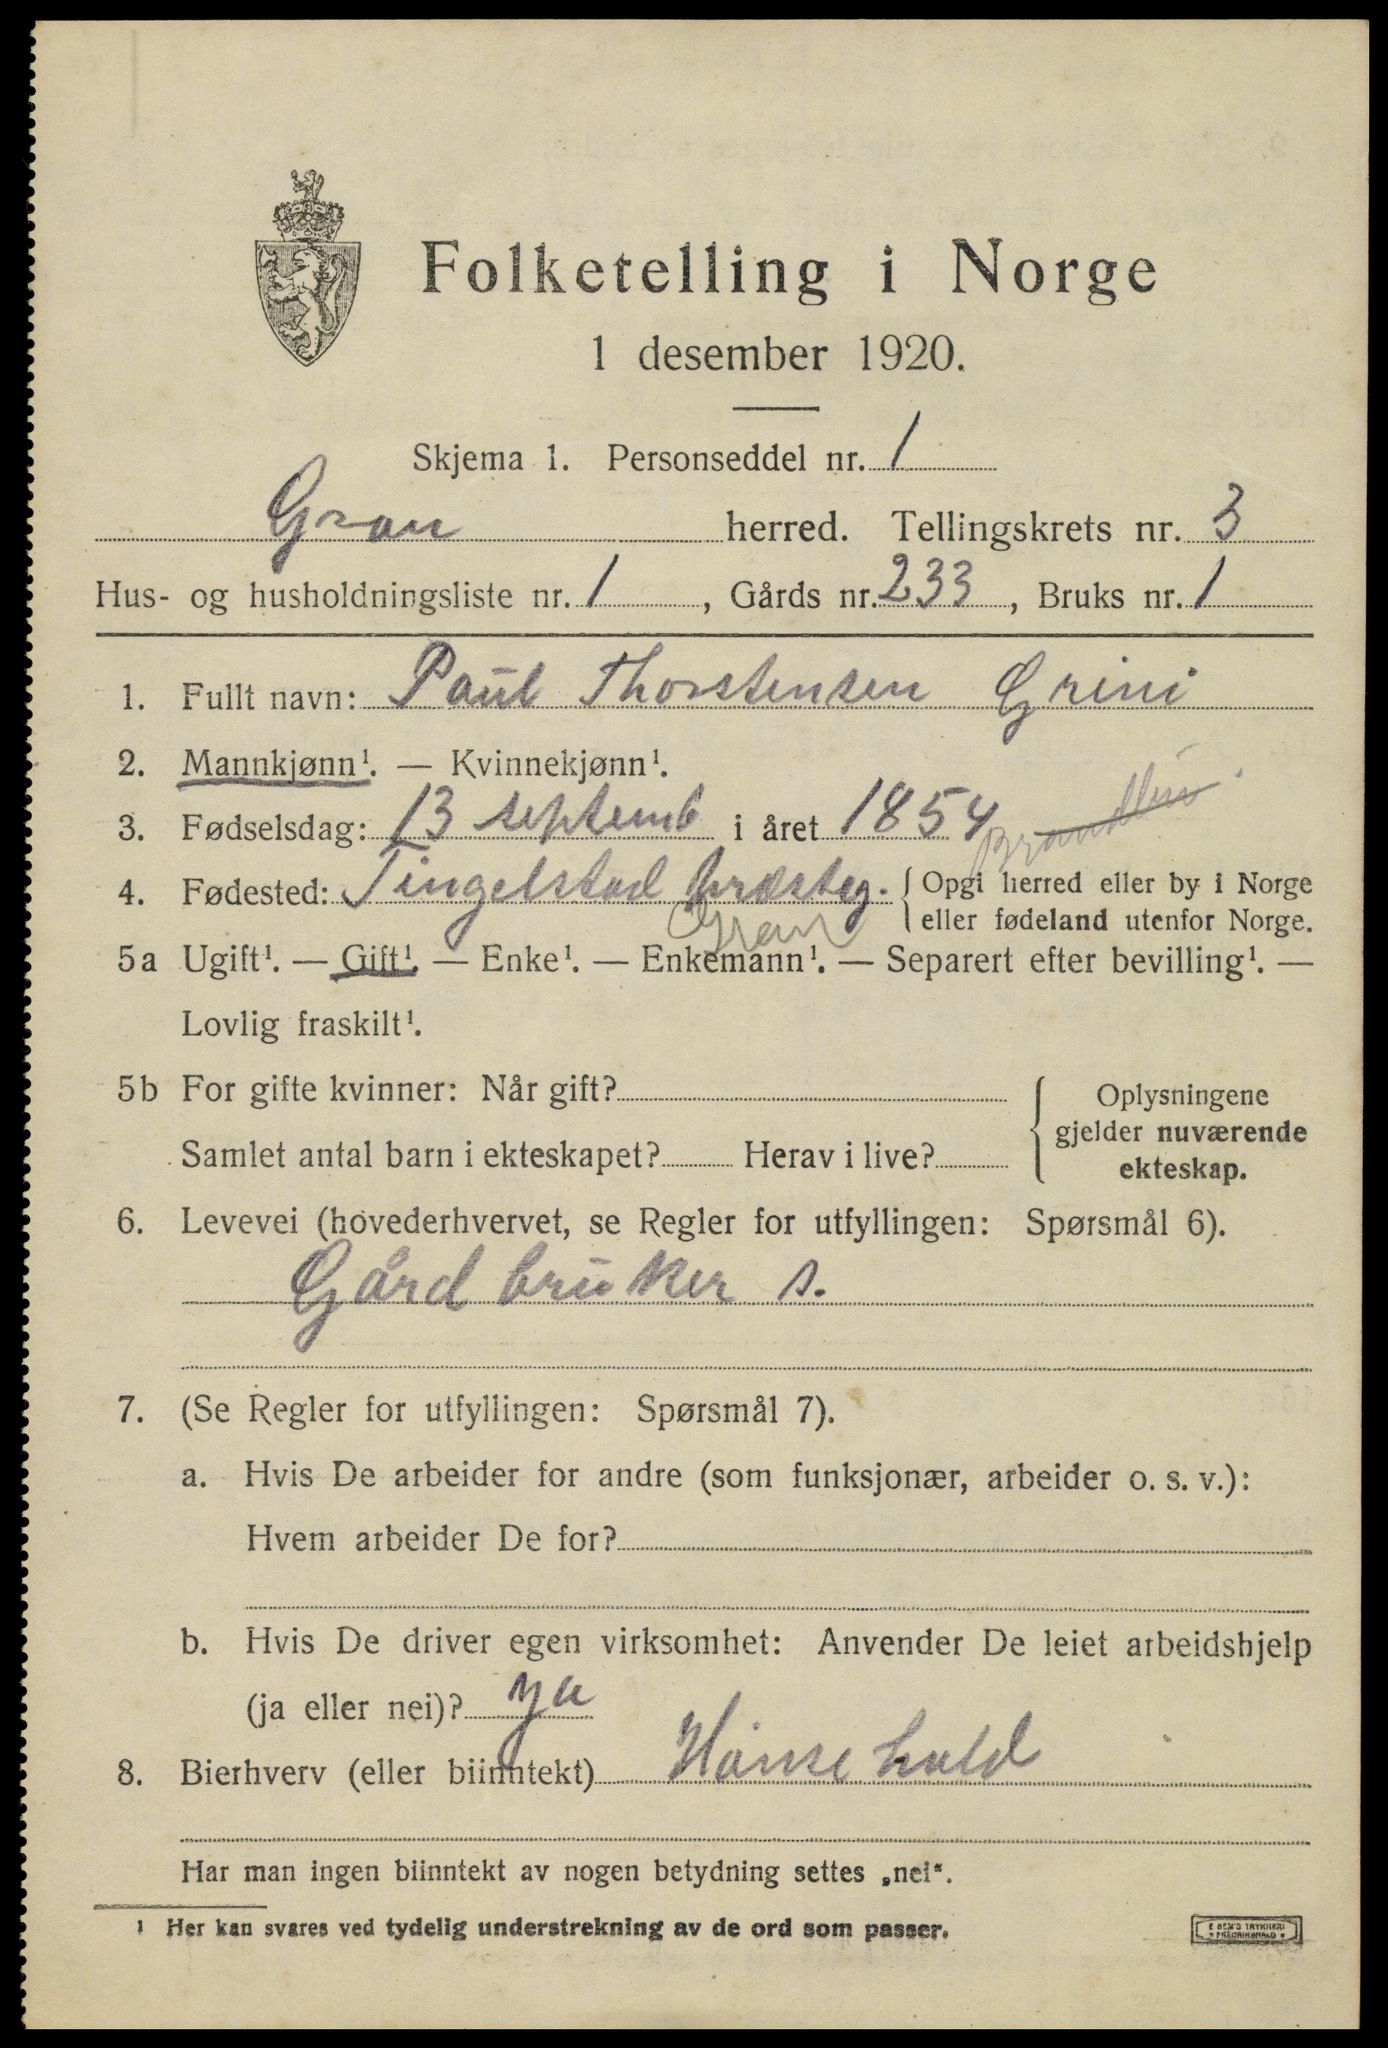 Folketelling i Norge
1 desember 1920.
Skjema 1. Personseddel nr. 1
Gran herred. Tellingskrets nr. 3
Hus- og husholdningsliste nr. 1, Gårds nr. 233, Bruks nr. 1
1. Fullt navn: Paul Thorstensen Grini
2. Mannkjønn¹. — Kvinnekjønn¹.
3. Fødselsdag: 13 septemb i året 1854
4. Fødested: Tingelstad præsteg. { Opgi herred eller by i Norge
eller fødeland utenfor Norge.
Gran
5a Ugift¹. — Gift¹. — Enke¹. — Enkemann¹. — Separert efter bevilling¹. —
Lovlig fraskilt¹.
5b For gifte kvinner: Når gift?
Samlet antal barn i ekteskapet? Herav i live?
{ Oplysningene
gjelder nuværende
ekteskap.
6. Levevei (hovederhvervet, se Regler for utfyllingen: Spørsmål 6).
Gårdbruker s.
7. (Se Regler for utfyllingen: Spørsmål 7).
a. Hvis De arbeider for andre (som funksjonær, arbeider o. s. v.):
Hvem arbeider De for?
b. Hvis De driver egen virksomhet: Anvender De leiet arbeidshjelp
(ja eller nei)? ja
8. Bierhverv (eller biinntekt) Hønsehold
Har man ingen biinntekt av nogen betydning settes „nei“.
¹ Her kan svares ved tydelig understrekning av de ord som passer.
E SEM'S TRYKKERI
• FREDRIKSHALD •